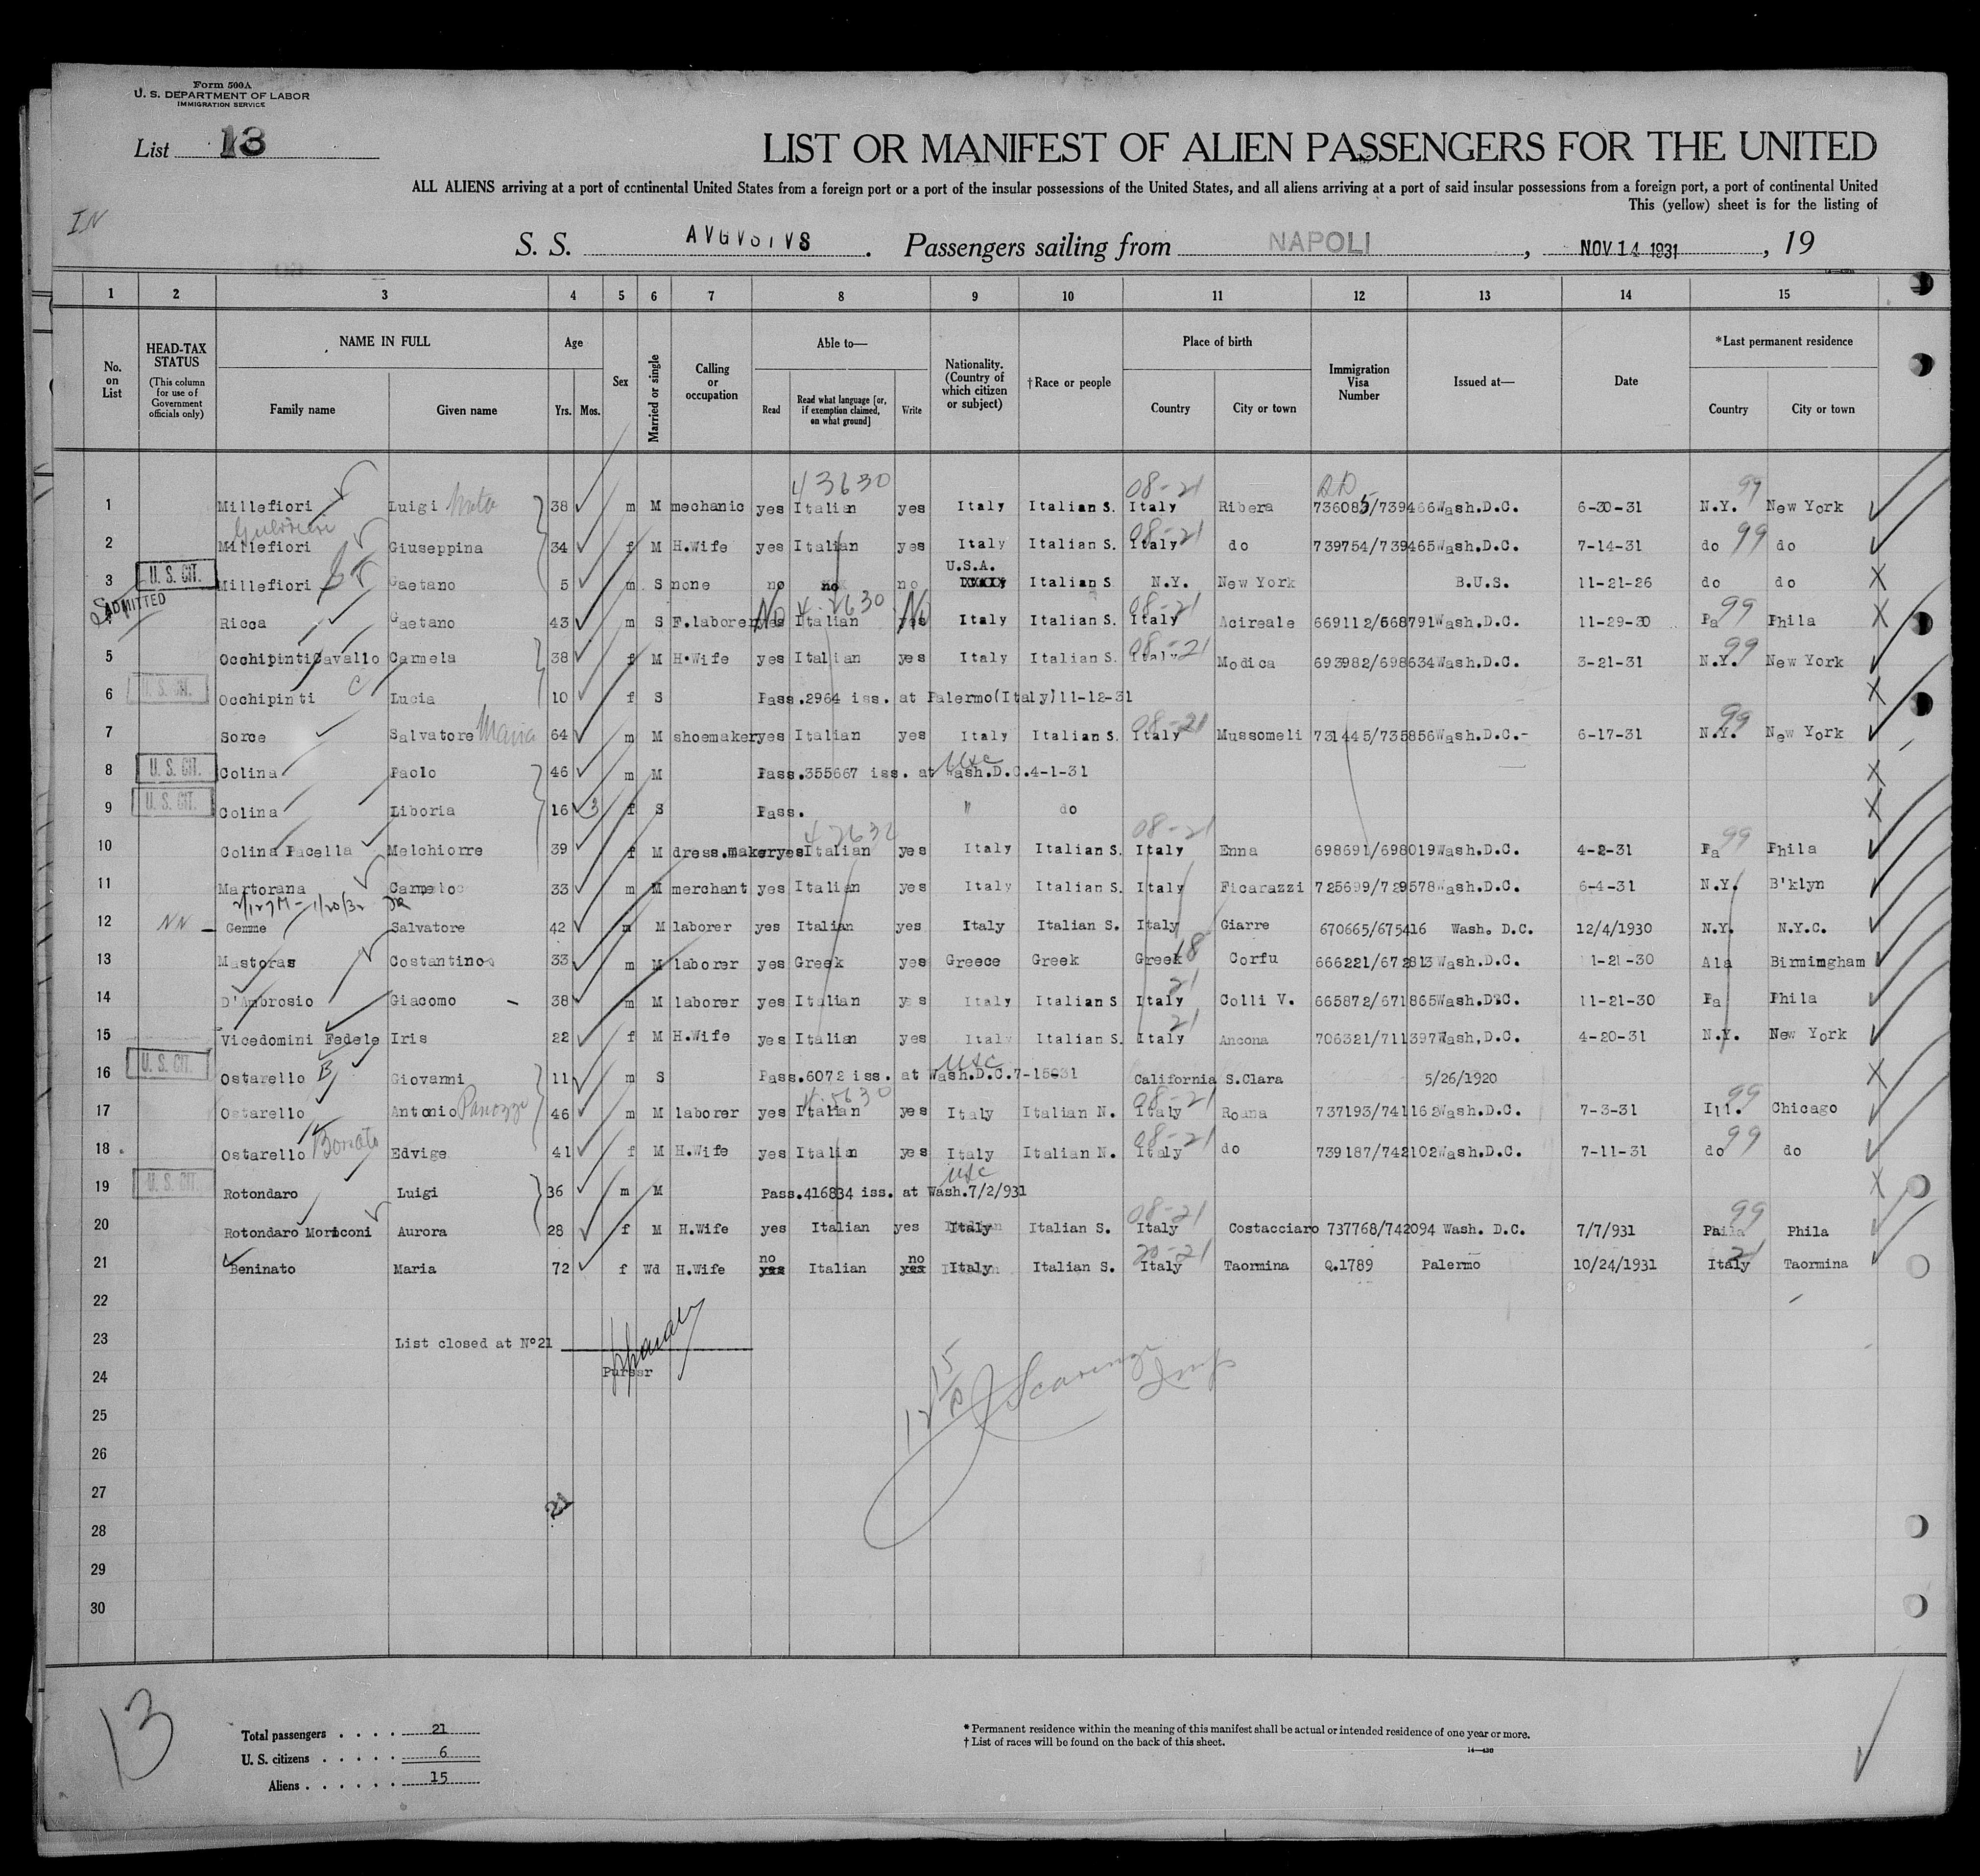 Form 500A
U. S. DEPARTMENT OF LABOR
IMMIGRATION SERVICE
List 13
LIST OR MANIFEST OF ALIEN PASSENGERS FOR THE UNITED
ALL ALIENS arriving at a port of continental United States from a foreign port or a port of the insular possessions of the United States, and all aliens arriving at a port of said insular possessions from a foreign port, a port of continental United
This (yellow) sheet is for the listing of
IN
S. S. AVGVSTVS. Passengers sailing from NAPOLI, NOV 14 1931, 19
1 2 3 4 5 6 7 8 9 10 11 12 13 14 15
No. on List
HEAD-TAX STATUS (This column for use of Government officials only)
NAME IN FULL
Family name Given name
Age
Yrs. Mos.
Sex
Married or single
Calling or occupation
Able to—
Read Read what language [or, if exemption claimed, on what ground] Write
Nationality. (Country of which citizen or subject)
†Race or people
Place of birth
Country City or town
Immigration Visa Number
Issued at—
Date
*Last permanent residence
Country City or town
43630 08-21 99
1 Millefiori Luigi 38 m M mechanic yes Italian yes Italy Italian S. Italy Ribera 736085/739466 Wash.D.C. 6-30-31 N.Y. New York
08-21
2 Millefiori Giuseppina 34 f M H.Wife yes Italian yes Italy Italian S. Italy do 739754/739465 Wash.D.C. 7-14-31 do 99 do
U.S.A.
3 U. S. CIT. Millefiori Gaetano 5 m S none no no no Italian S N.Y. New York B.U.S. 11-21-26 do do
ADMITTED No No 08-21 99
Ricca Gaetano 43 m S F.laborer yes Italian yes Italy Italian S. Italy Acireale 669112/668791 Wash.D.C. 11-29-30 Pa Phila
08-21 99
5 Occhipinti Cavallo Carmela 38 f M H.Wife yes Italian yes Italy Italian S. Italy Modica 693982/698634 Wash.D.C. 3-21-31 N.Y. New York
6 U. S. CIT. Occhipinti Lucia 10 f S Pass.2964 iss. at Palermo(Italy)11-12-31
08-21 99
7 Sorce Salvatore Maria 64 m M shoemaker yes Italian yes Italy Italian S. Italy Mussomeli 731445/735856 Wash.D.C.- 6-17-31 N.Y. New York
USC
8 U. S. CIT. Colina Paolo 46 m M Pass.355667 iss. at Wash.D.C.4-1-31
9 U. S. CIT. Colina Liboria 16 3 f S Pass. " do
08-21 99
10 Colina Pacella Melchiorre 39 f M dress.maker yes Italian yes Italy Italian S. Italy Enna 698691/698019 Wash.D.C. 4-2-31 Pa Phila
11 Martorana Carmelo 33 m M merchant yes Italian yes Italy Italian S. Italy Ficarazzi 725699/729578 Wash.D.C. 6-4-31 N.Y. B'klyn
1/20/32
12 NN Gemme Salvatore 42 m M laborer yes Italian yes Italy Italian S. Italy Giarre 670665/675416 Wash. D.C. 12/4/1930 N.Y. N.Y.C.
18
13 Mastoras Costantinos 33 m M laborer yes Greek yes Greece Greek Greek Corfu 666221/672813 Wash.D.C. 11-21-30 Ala Birmingham
21
14 D'Ambrosio Giacomo - 38 m M laborer yes Italian yes Italy Italian S Italy Colli V. 665872/671865 Wash.D.C. 11-21-30 Pa Phila
21
15 Vicedomini Fedele Iris 22 f M H.Wife yes Italian yes Italy Italian S. Italy Ancona 706321/711397 Wash,D.C. 4-20-31 N.Y. New York
USC
16 U. S. CIT. Ostarello B Giovanni 11 m S Pass.6072 iss. at Wash.D.C.7-15031 California S.Clara 5/26/1920
08-21 99
17 Ostarello Antonio Panozzo 46 m M laborer yes Italian yes Italy Italian N. Italy Roana 737193/741162 Wash.D.C. 7-3-31 Ill. Chicago
08-21
18 Ostarello Bonato Edvige 41 f M H.Wife yes Italian yes Italy Italian N. Italy do 739187/742102 Wash.D.C. 7-11-31 do 99 do
USC
19 U. S. CIT. Rotondaro Luigi 36 m M Pass.416834 iss. at Wash.7/2/931
08-21 99
20 Rotondaro Moriconi Aurora 28 f M H.Wife yes Italian yes Italy Italian S. Italy Costacciaro 737768/742094 Wash. D.C. 7/7/931 Phila Phila
no no 20-21 21
21 Beninato Maria 72 f Wd H.Wife yes Italian yes Italy Italian S. Italy Taormina Q.1789 Palermo 10/24/1931 Italy Taormina
22
23 List closed at N°21
Purser
24
25
26
27
21
28
29
30
13
Total passengers . . . . 21
U. S. citizens . . . . . 6
Aliens . . . . . . 15
* Permanent residence within the meaning of this manifest shall be actual or intended residence of one year or more.
† List of races will be found on the back of this sheet.
14—430